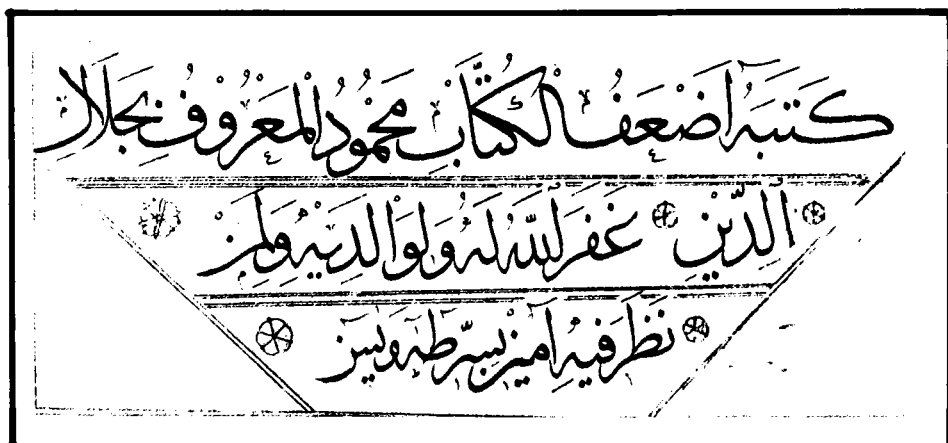 كَتَبَهُ أَضْعَفُ الْكُتَّابِ مَحْمُودُ الْمَعْرُوفُ بِجَلَالِ
الدِّيْنِ غَفَرَ اللّٰهُ لَهُ وَلِوَالِدَيْهِ وَلِمَنْ
نَظَرَ فِيْهِ آمِيْنَ بِسِرِّ طٰهٰ وَيٰسٓ